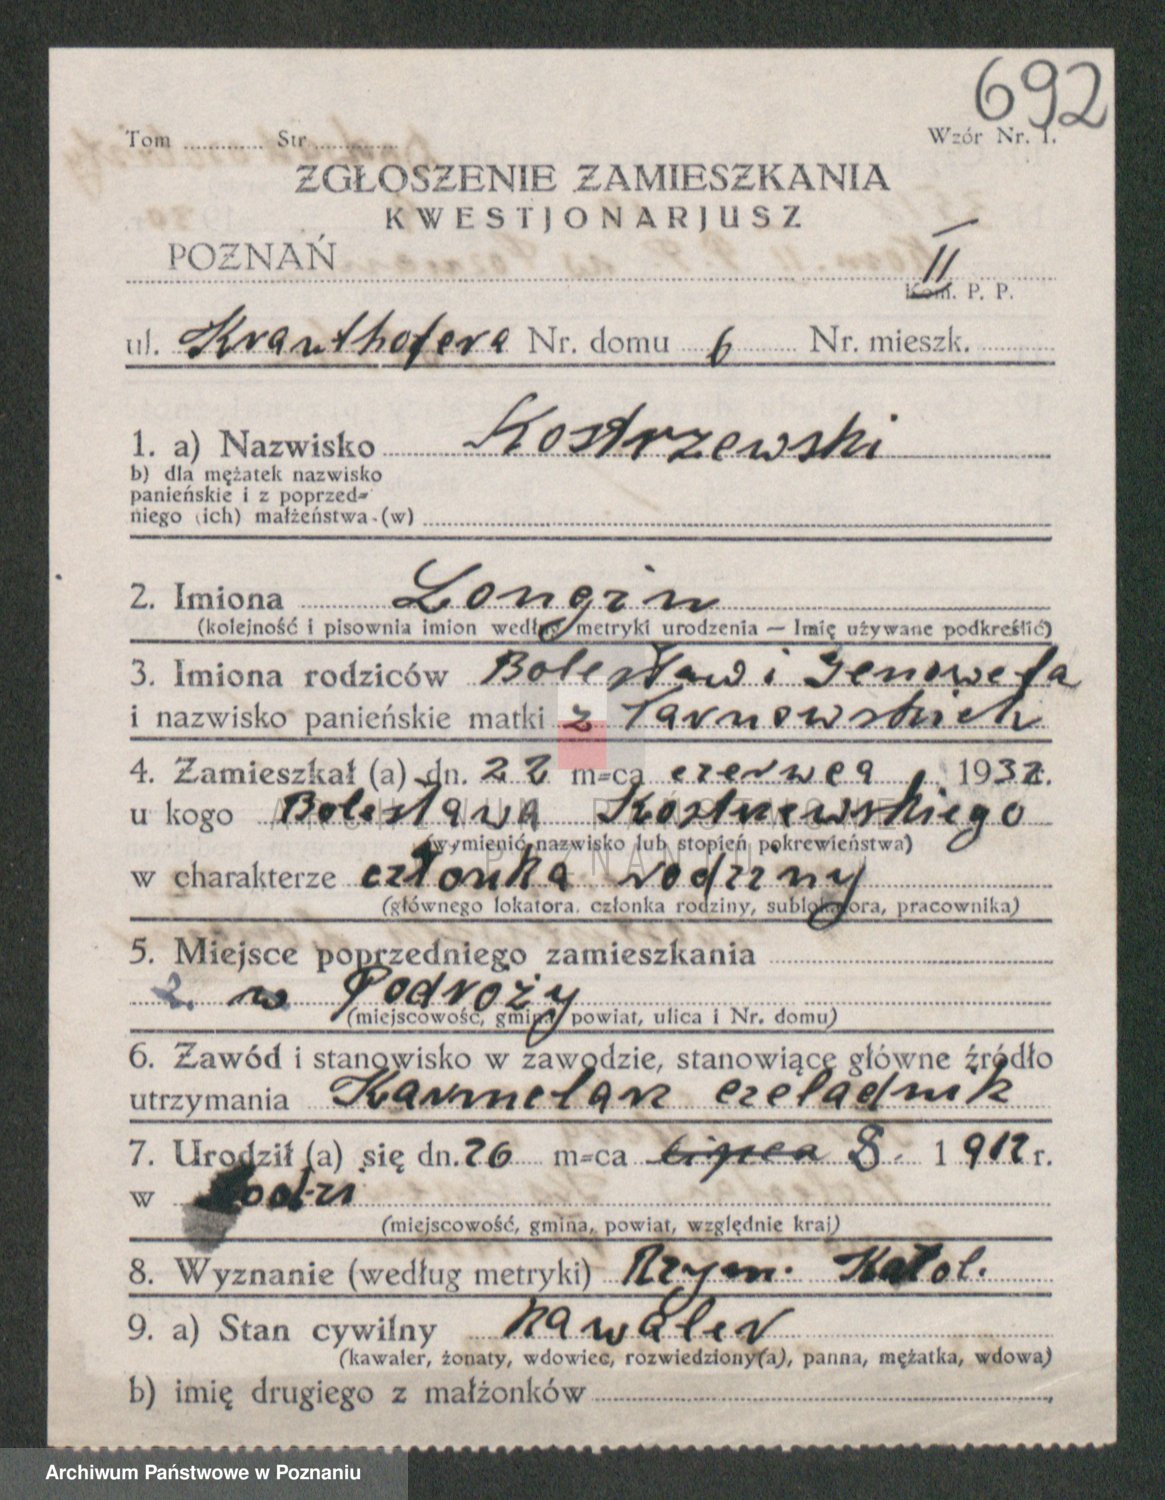 692
Tom ............ Str. ............ Wzór Nr. 1.
ZGŁOSZENIE ZAMIESZKANIA
KWESTJONARJUSZ
POZNAŃ II
Kom. P. P.
ul. Krauthofera Nr. domu 6 Nr. mieszk. ............
1. a) Nazwisko Kostrzewski
b) dla mężatek nazwisko
panieńskie i z poprzed-
niego (ich) małżeństwa (w) ............
2. Imiona Longin
(kolejność i pisownia imion według metryki urodzenia — Imię używane podkreślić)
3. Imiona rodziców Bolesław i Genowefa
i nazwisko panieńskie matki z Tarnowskich
4. Zamieszkał (a) dn. 22 m-ca czerwca 1932.
u kogo Bolesława Kostrzewskiego
(wymienić nazwisko lub stopień pokrewieństwa)
w charakterze członka rodziny
(głównego lokatora, członka rodziny, sublokatora, pracownika)
5. Miejsce poprzedniego zamieszkania ............
2. w Podroży
(miejscowość, gmina, powiat, ulica i Nr. domu)
6. Zawód i stanowisko w zawodzie, stanowiące główne źródło
utrzymania Karmelarz czeladnik
7. Urodził (a) się dn. 26 m-ca lipca 8. 1912 r.
w Łodzi
(miejscowość, gmina, powiat, względnie kraj)
8. Wyznanie (według metryki) Rzym. Katol.
9. a) Stan cywilny kawaler
(kawaler, żonaty, wdowiec, rozwiedziony(a), panna, mężatka, wdowa)
b) imię drugiego z małżonków ............
ARCHIWUM PAŃSTWOWE
W POZNANIU
Archiwum Państwowe w Poznaniu